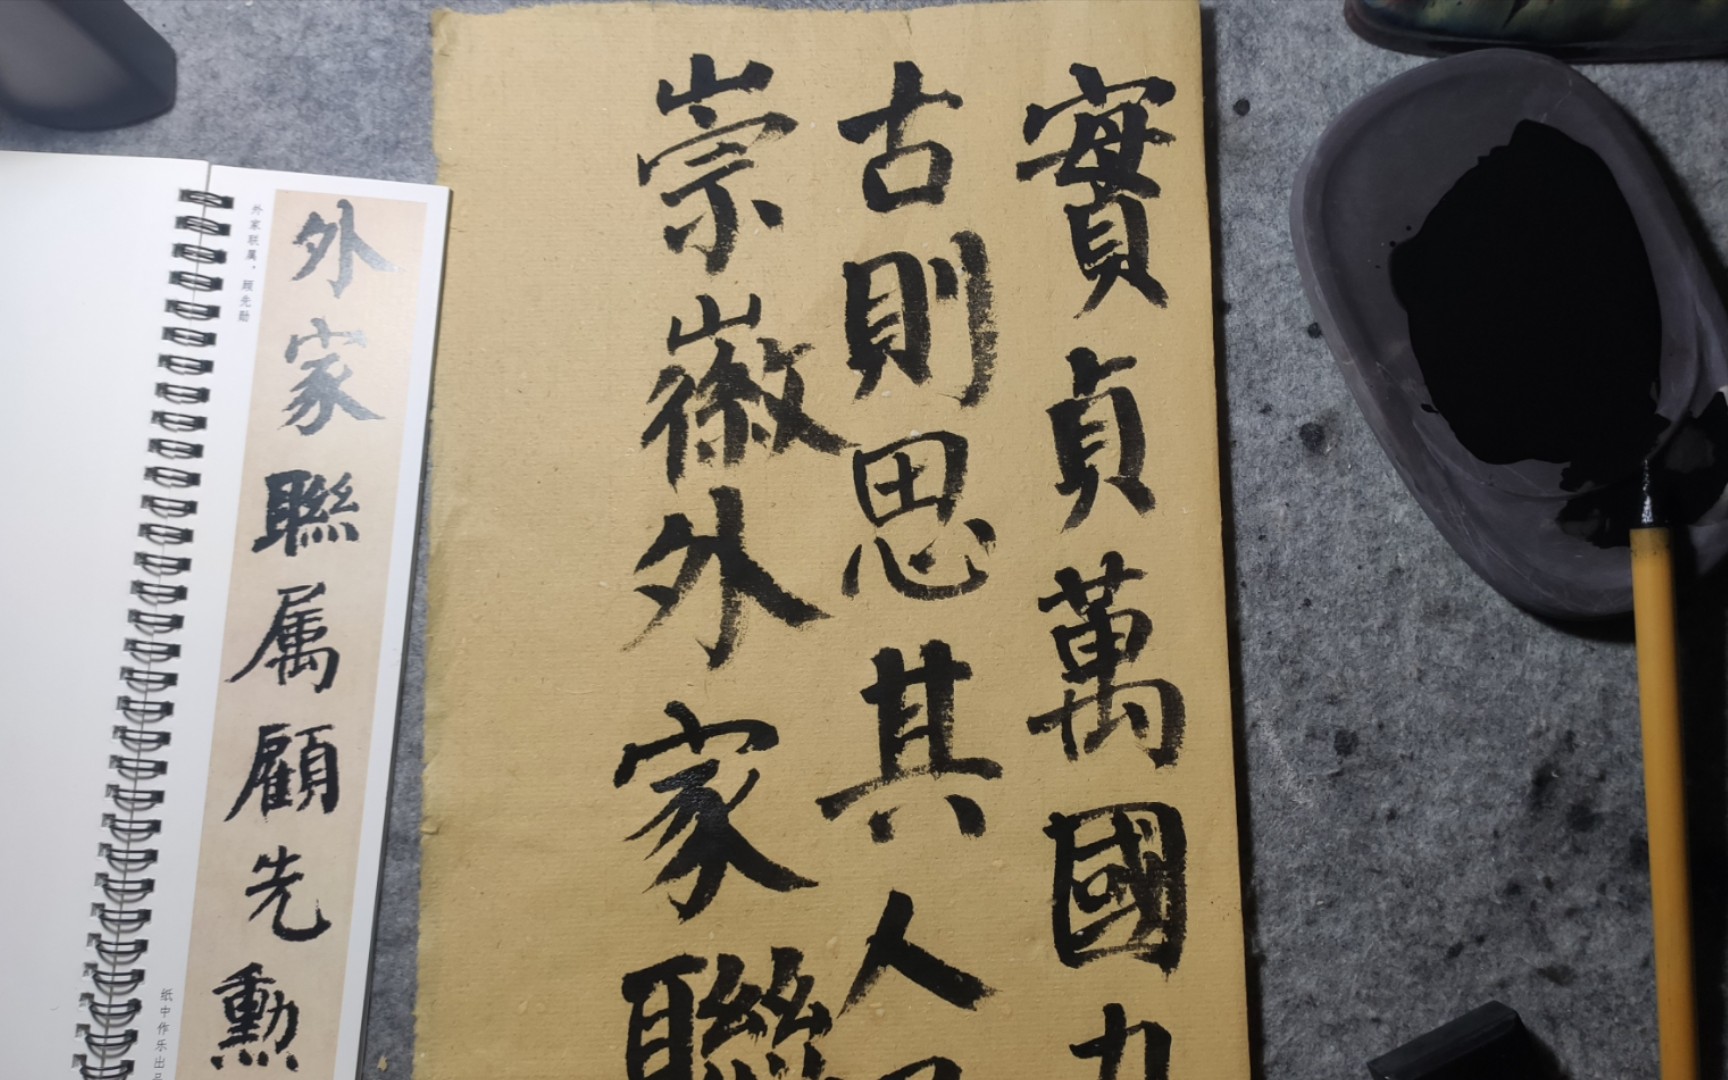 實貞萬國
古則思其人
崇徽外家聯
外家联属，顾先勋
外家聯属顧先勳
纸中作乐出品